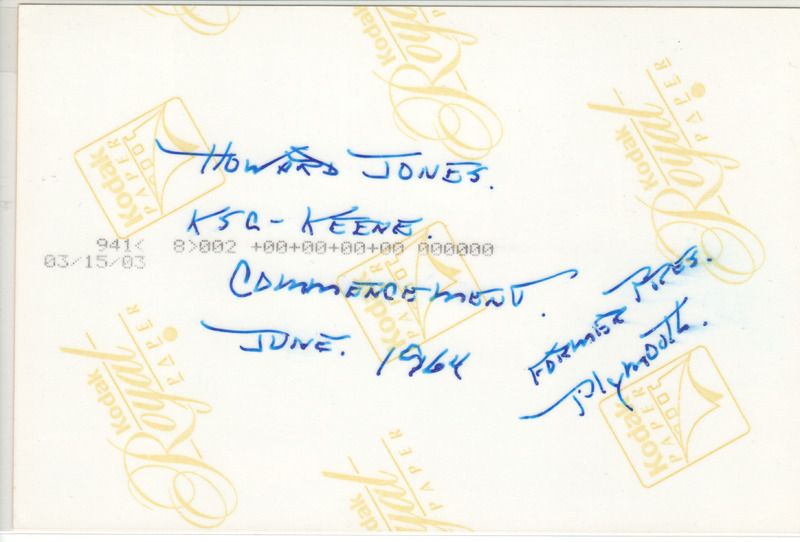 HOWARD JONES.
KSC - KEENE.
941< 8>002 +00+00+00+00 000000
03/15/03
COMMENCEMENT.
JUNE. 1964
FORMER PRES.
Plymouth.
Kodak
Royal
PAPER
Kodak
Royal
PAPER
Kodak
PAPER
Kodak
PAPER
Kodak
Royal
PAPER
Kodak
PAPER
Kodak
Royal
PAPER